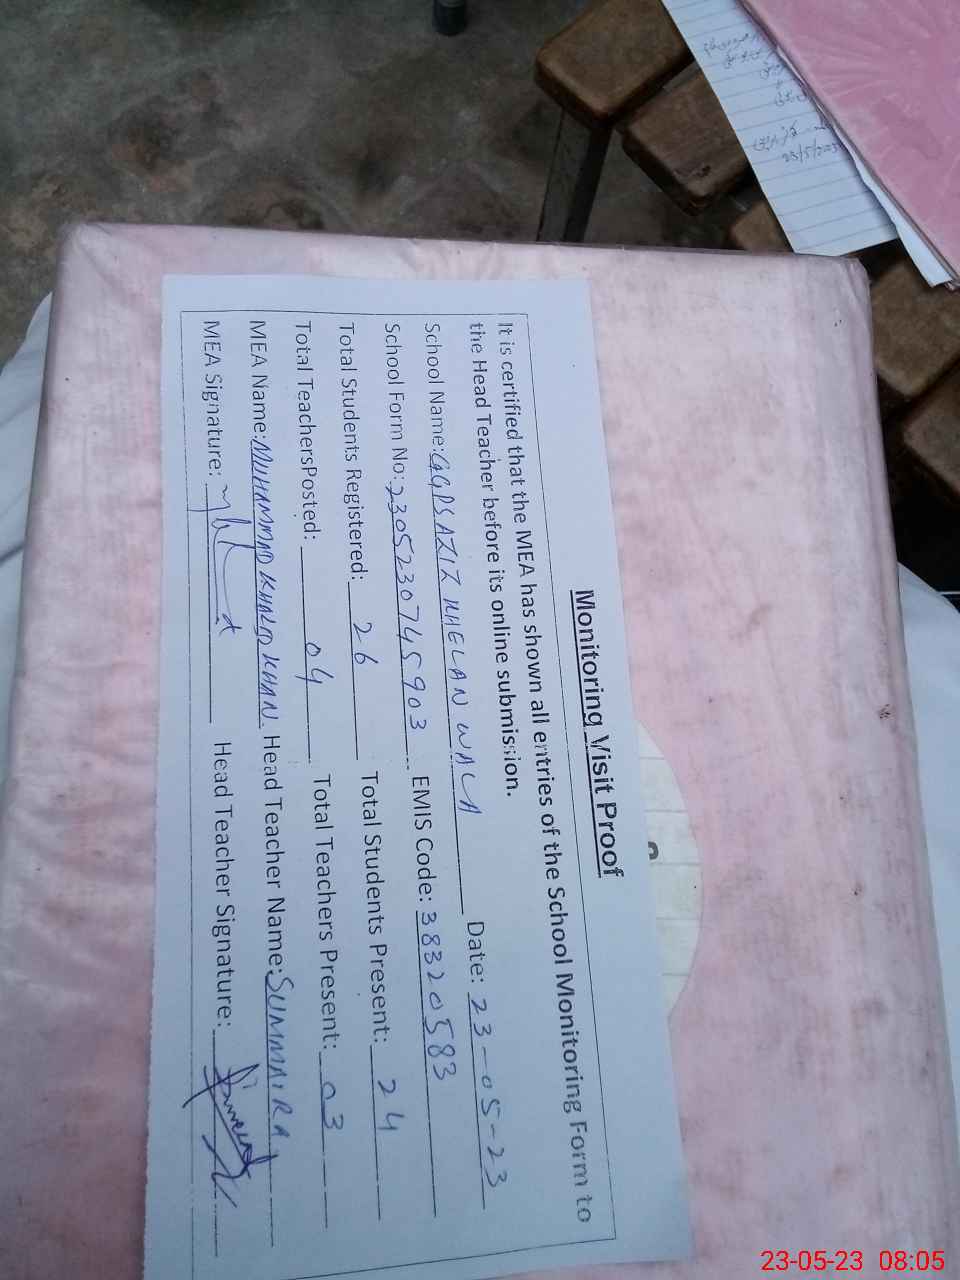 Monitoring Visit Proof
It is certified that the MEA has shown all entries of the School Monitoring Form to
the Head Teacher before its online submission.
School Name: GGPS AZIZ KHELAN WALA Date: 23-05-23
School Form No: 2305230745903 EMIS Code: 38320583
Total Students Registered: 26 Total Students Present: 24
Total TeachersPosted: 04 Total Teachers Present: 03
MEA Name: MUHAMMAD KHALID KHAN. Head Teacher Name: SUMMAIRA
MEA Signature: Head Teacher Signature:
23-05-23 08:05